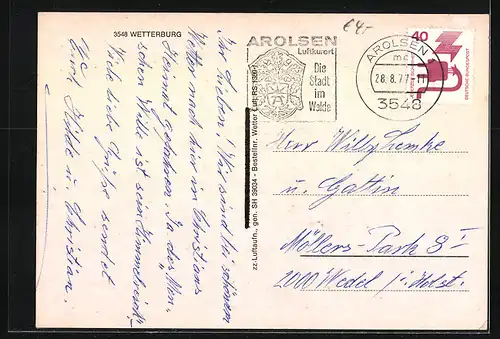 3548 WETTERBURG
Ihr Lieben! Wir sind bei schönem
Wetter noch hier in Christians
Heimat gefahren. In der
schen Stille ist sein
Viele liebe Grüße sendet
Hilde u. Christian.
zz-Luftaufn., gen. SH 39/34 - Bestellnr. Wetter Luft. RS 1399/1
64,-
AROLSEN
Luftkurort
Die
Stadt
im
Walde
AROLSEN
mc
28.8.77-11
3548
40
DEUTSCHE BUNDESPOST
Herr Willy Lemke
u. Gattin
Möllers-Park 8 I
2000 Wedel i. Holst.